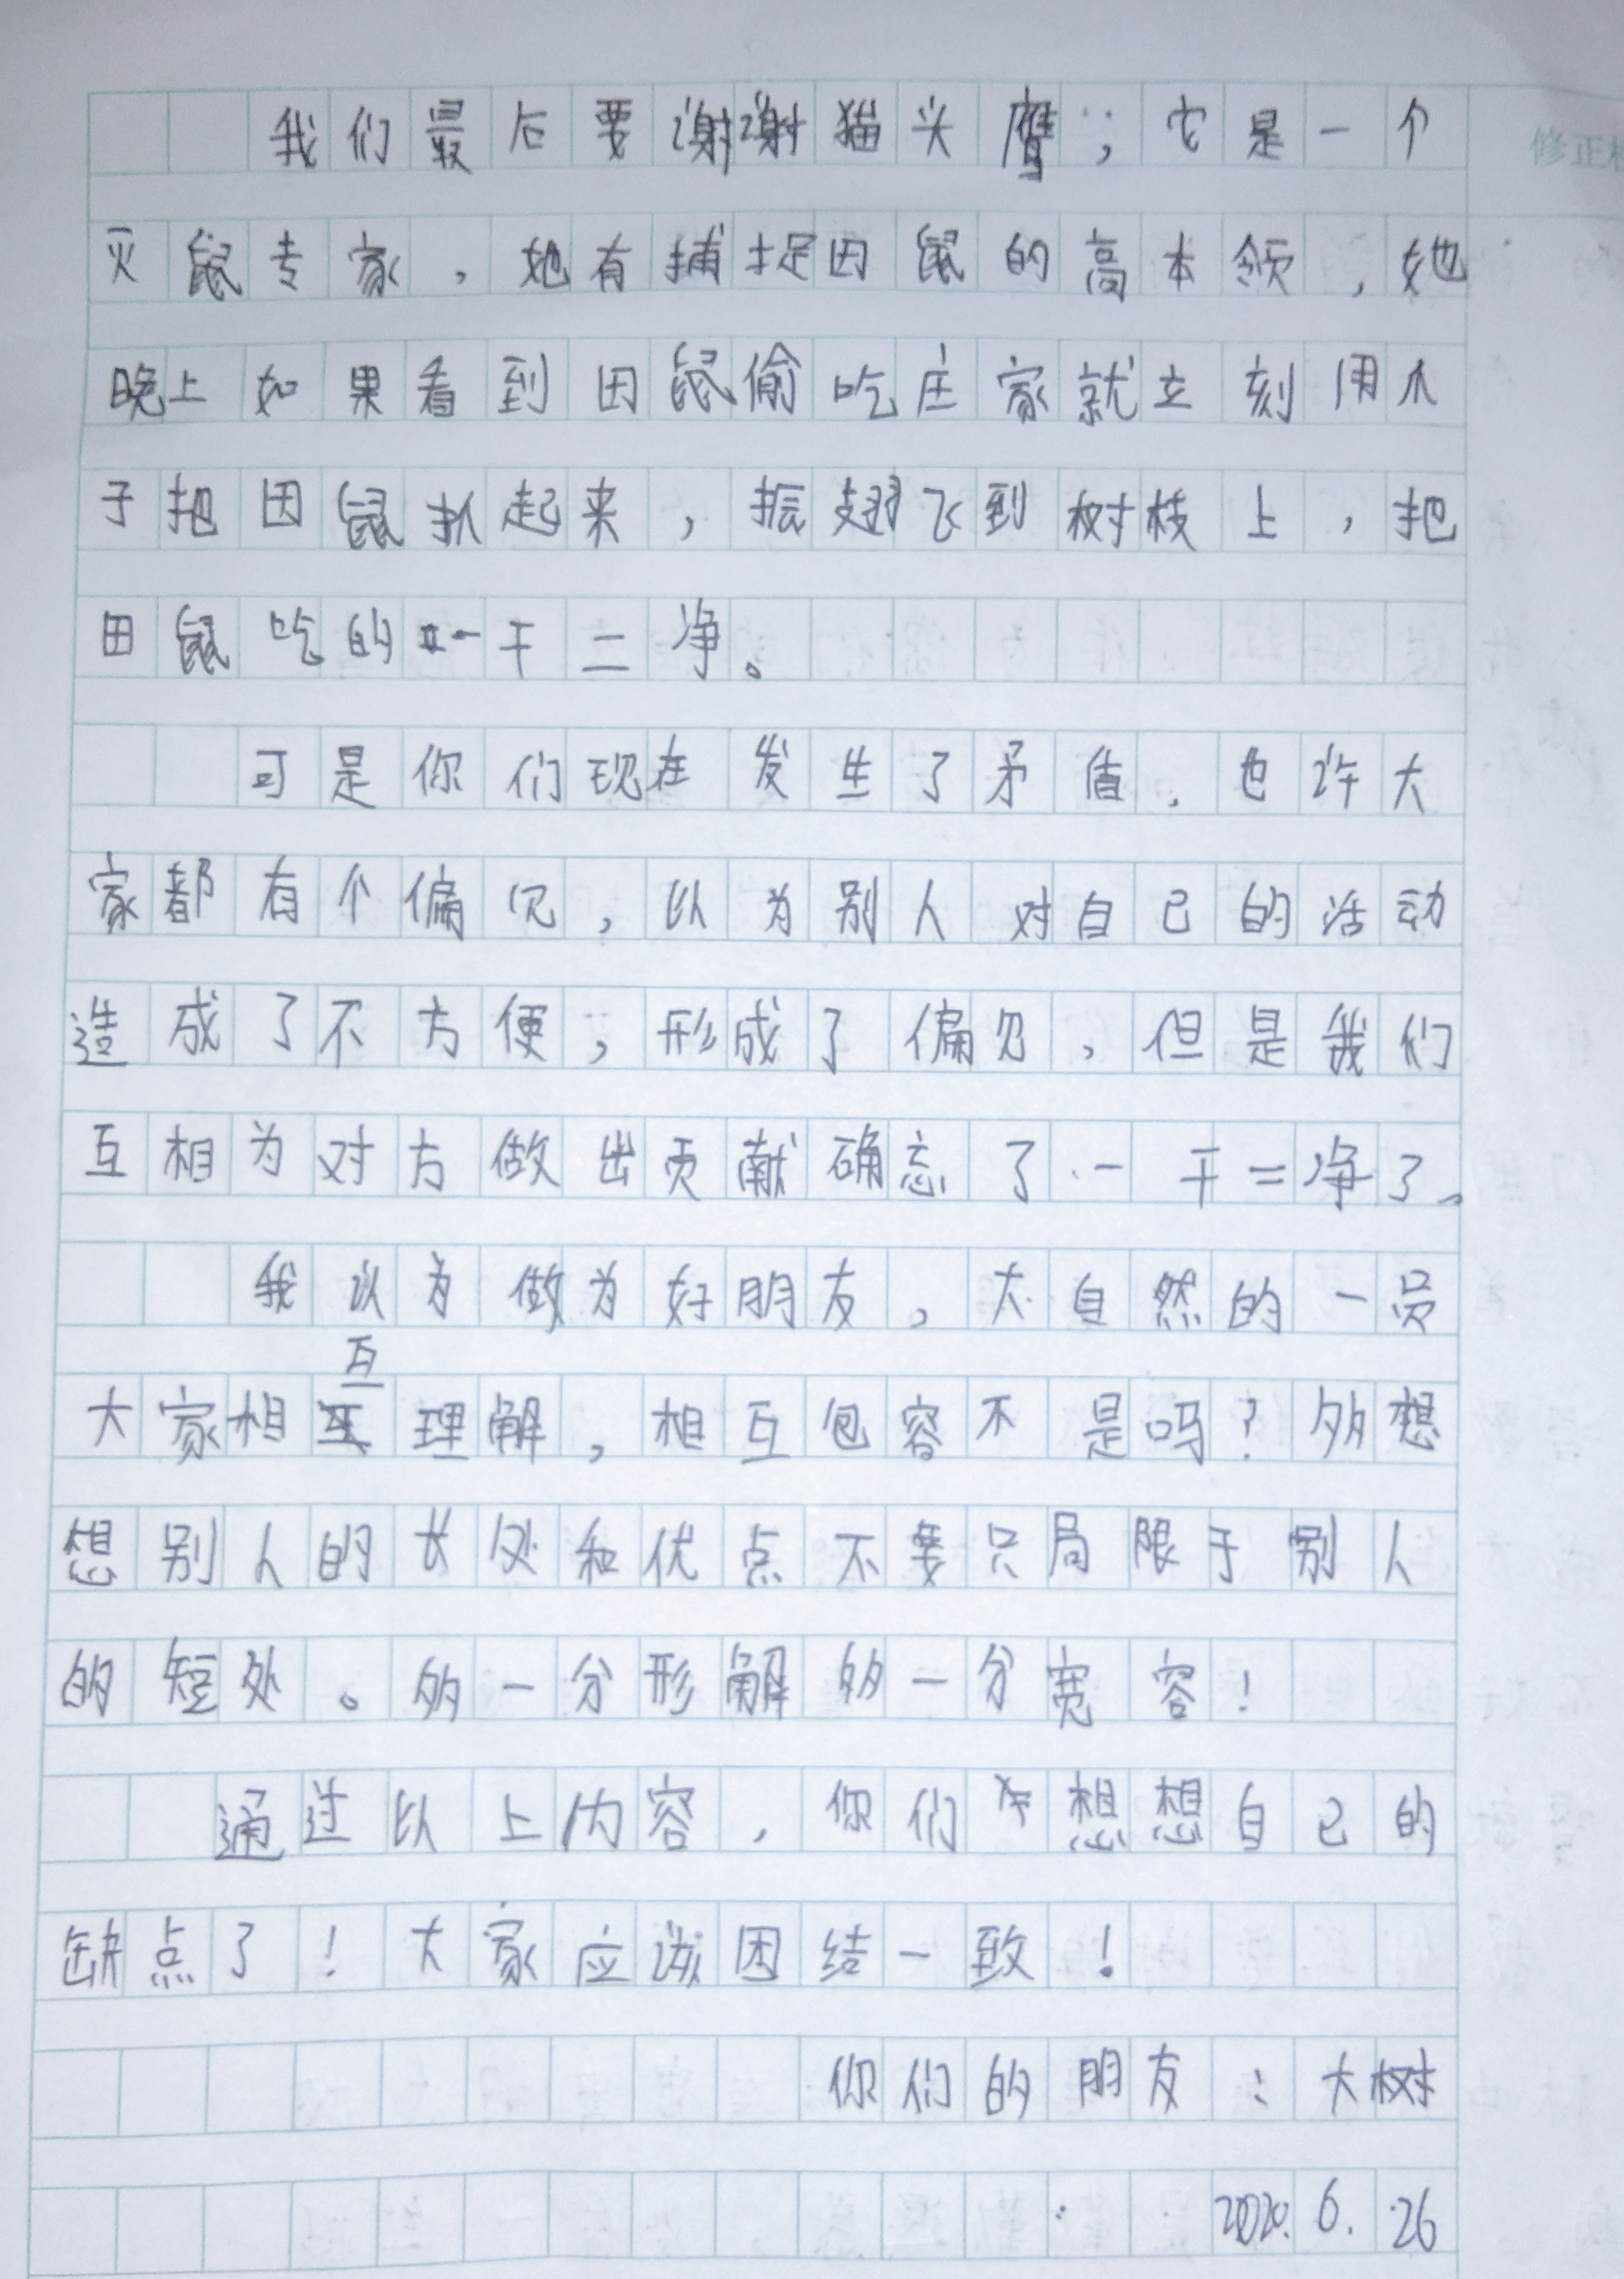 我们最后要谢谢猫头鹰；它是一个
灭鼠专家，她有捕捉田鼠的高本领，她
晚上如果看到田鼠偷吃庄家就立刻用爪
子把田鼠扒起来，振翅飞到树枝上，把
田鼠吃的一干二净。
可是你们现在发生了矛盾．也许大
家都有个偏见，以为别人对自己的活动
造成了不方便；形成了偏见，但是我们
互相为对方做出贡献确忘了一干二净了。
我以为做为好朋友，大自然的一员
大家相互理解，相互包容不是吗？多想
想别人的长处和优点不要只局限于别人
的短处。多一分形解多一分宽容！
通过以上内容，你们想想自己的
缺点了！大家应该团结一致！
你们的朋友：大树
2020.6.26